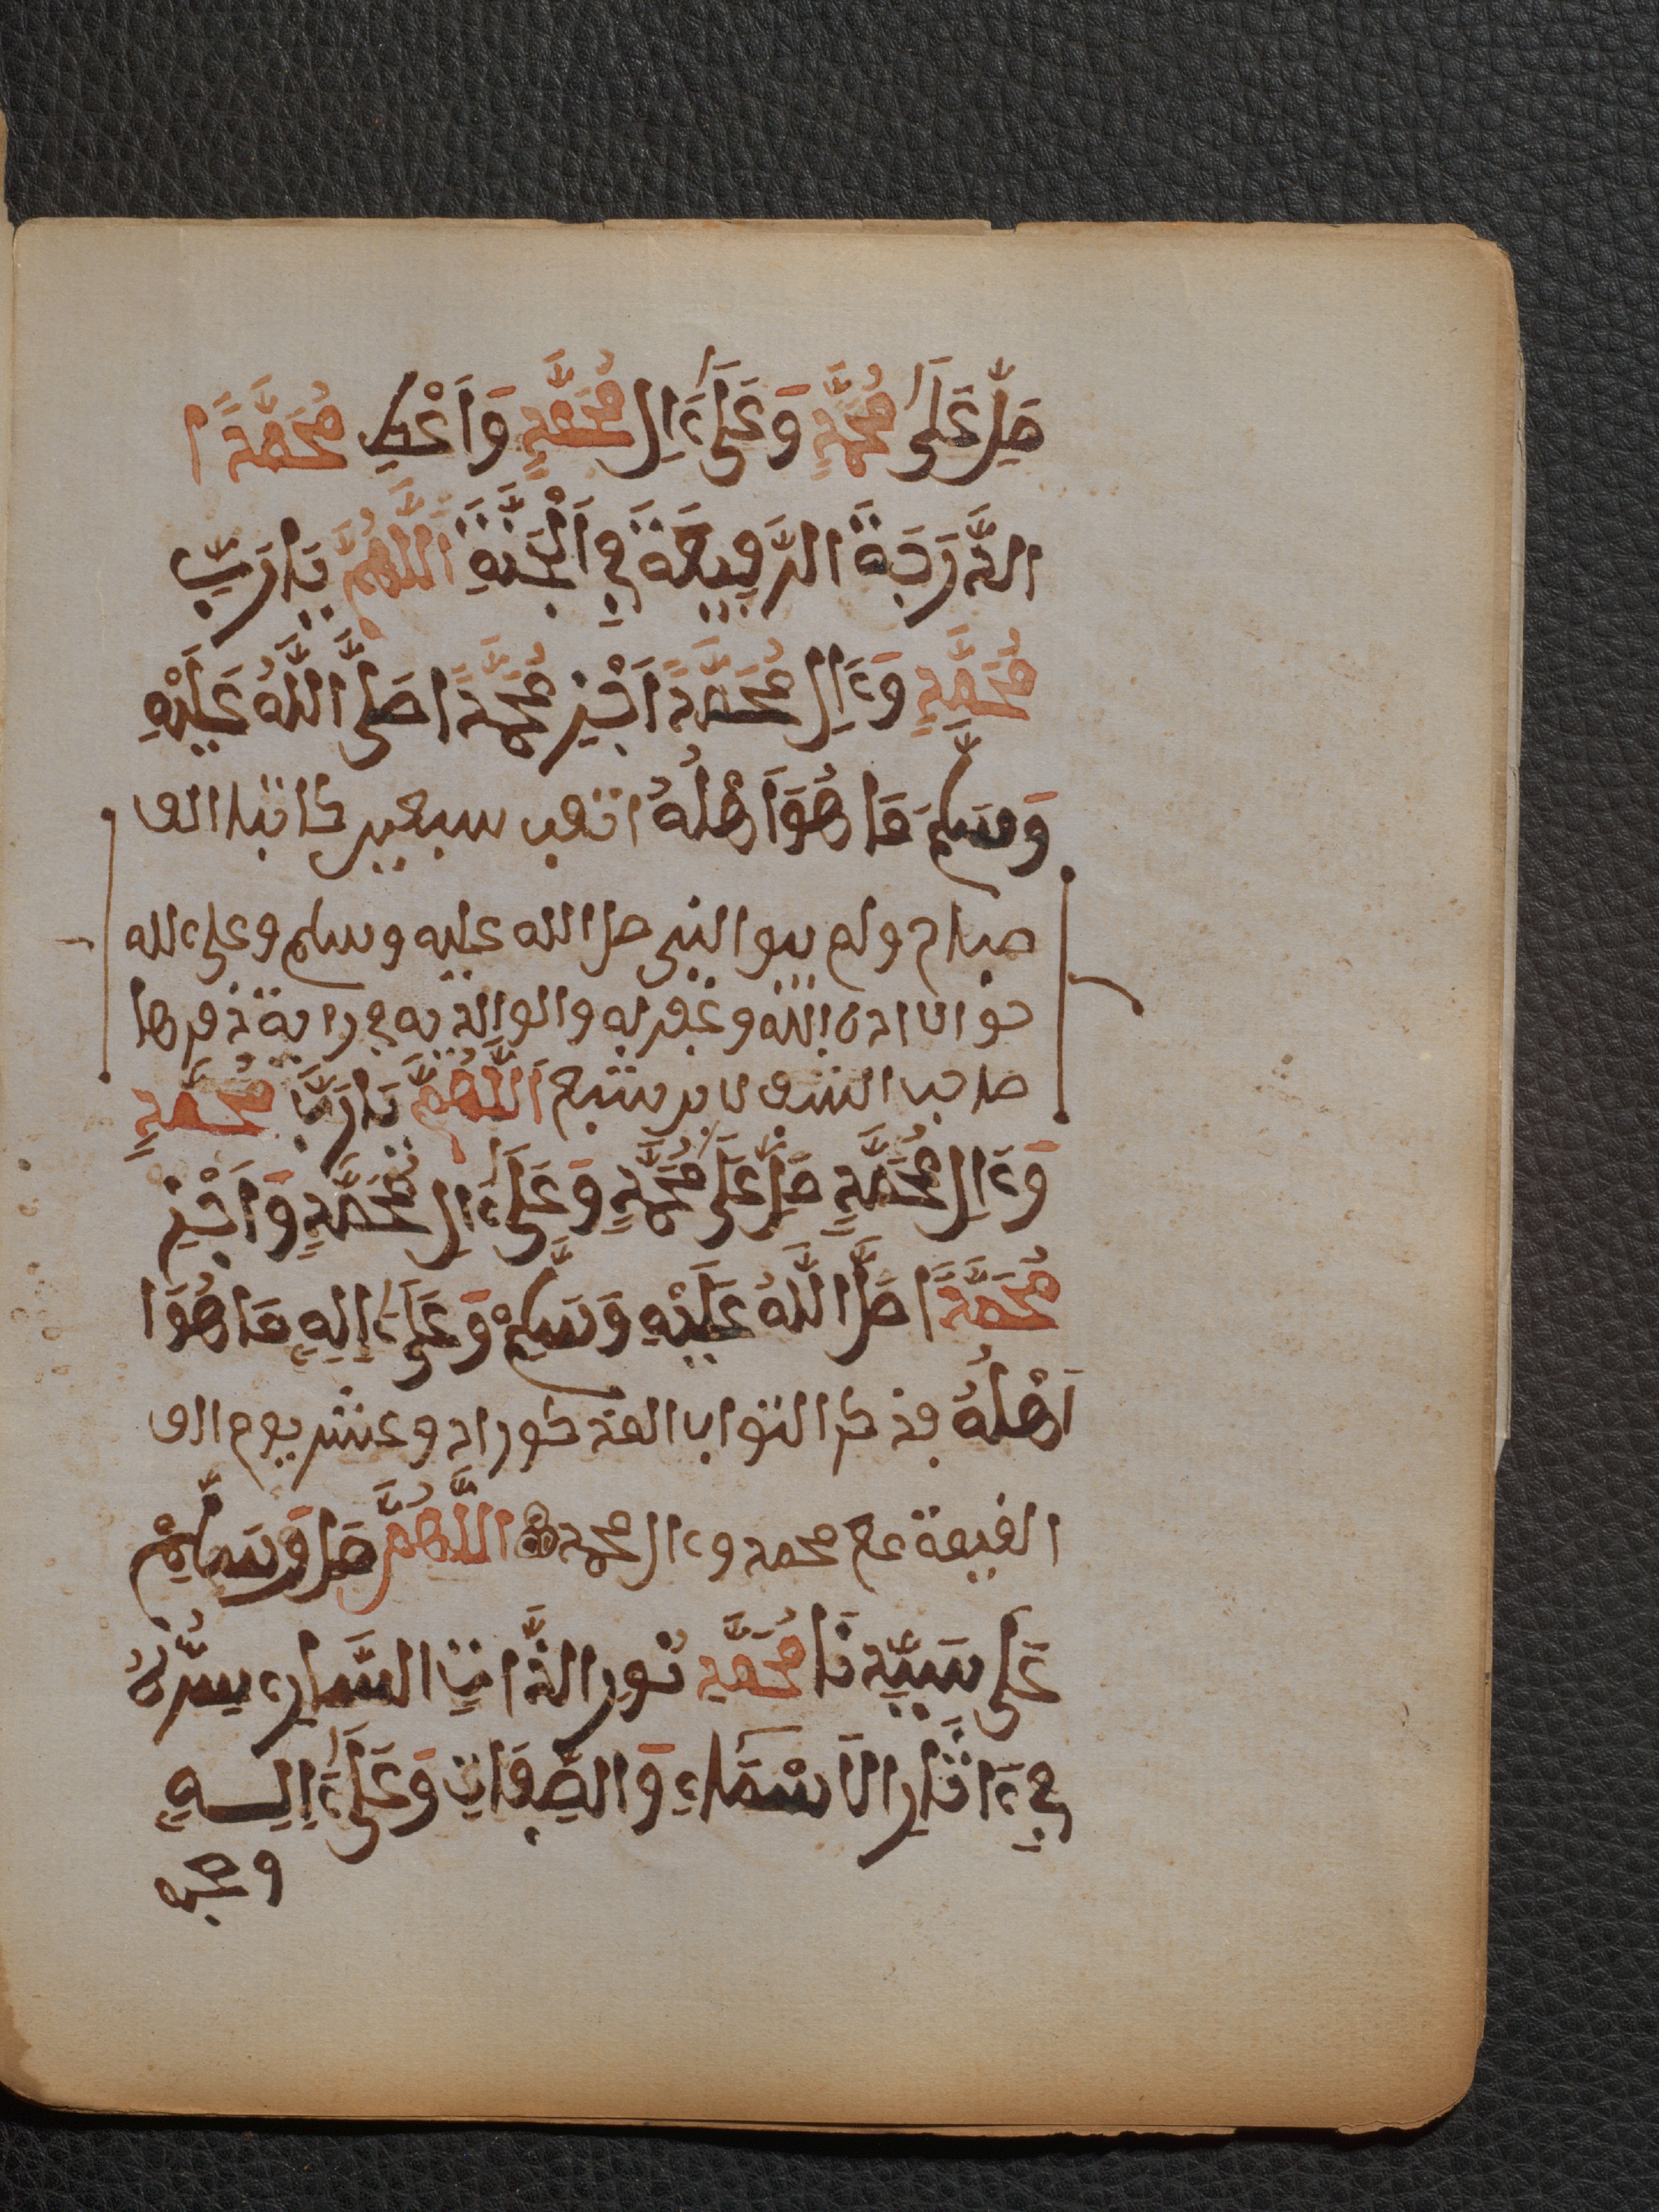 صَلِّ عَلَى مُحَمَّدٍ وَعَلَىٰ ءَالِ مُحَمَّدٍ وَاَعْطِ مُحَمَّدًا
الدَّرَجَةَ الرَّفِيعَةَ فِي اَلْجَنَّةِ اَللَّهُمَّ يَا رَبِّ
مُحَمَّدٍ وَءَالِ مُحَمَّدٍ اَجْزِ مُحَمَّدًا صَلَّى اللَّهُ عَلَيْهِ
وَسَلَّمَ مَا هُوَ اَهْلُهُ اتعب سبعين كاتبا الف
صباح ولم يبق النبي صلى الله عليه وسلم وعلى ءاله
حق الا اداه الله وغفر له والوالديه في رواية ذكرها
صاحب الشرف لابن سبع اَللَّهُمَّ يَا رَبَّ مُحَمَّدٍ
وَءَالِ مُحَمَّدٍ صَلِّ عَلَى مُحَمَّدٍ وَعَلَىٰ ءَالِ مُحَمَّدٍ وَاَجْزِ
مُحَمَّدًا صَلَّى اللَّهُ عَلَيْهِ وَسَلَّمْ وَعَلَىٰ ءَالِهِ مَا هُوَ
اَهْلُهُ فذكر الثواب المذكور اد وعشر يوم الى
القيمة مع محمد وءال محمد اللَّهُمَّ صَلِّ وَسَلِّمْ
عَلَى سَيِّدِنَا مُحَمَّدٍ نُورِ الذَّاتِ السَّارِي سِرُّهُ
فِي ءَاثَارِ الَاسْمَاءِ وَالصِّفَاتِ وَعَلَىٰ ءَالِهِ
وصحبه